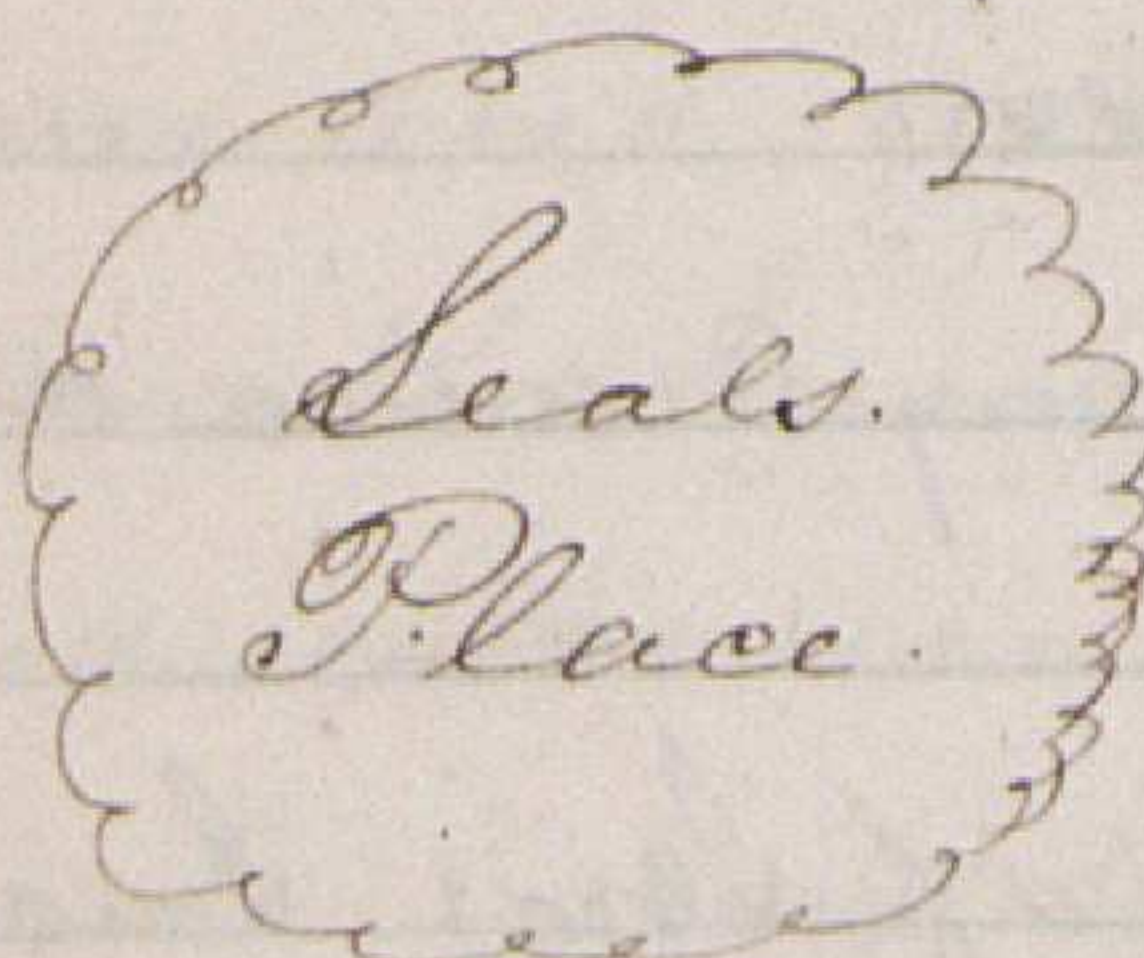 Seals.
Place.